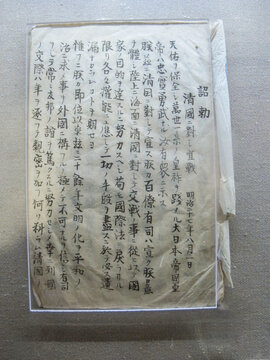 詔勅
清國ニ對シ宣戰
明治二十七年八月一日
天佑ヲ保全シ萬世一系ノ皇祚ヲ踐メル大日本帝國皇
帝ハ忠實勇武ナル汝有衆ニ示ス
朕茲ニ清國ニ對シテ宣ヲ戰ス朕カ百僚有司ハ宜ク朕カ意
ヲ體シ陸上ニ海面ニ清國ニ對シテ交戰ノ事ニ從ヒ以テ國
家ノ目的ヲ達スルニ努力スヘシ苟モ國際法ニ戻ラサル
限リ各々權能ニ應シテ一切ノ手段ヲ盡スニ於テ必ス遺
漏ナカラムコトヲ期セヨ
惟フニ朕カ即位以來茲ニ二十有餘年文明ノ化ヲ平和ノ
治ニ求メ事ヲ外國ニ構フルノ極メテ不可ナルヲ信シ有司
ヲシテ常ニ友邦ノ誼ヲ篤クスルニ努力セシメ幸ニ列國
ノ交際ハ年ヲ逐フテ親密ヲ加フ何ソ料ラム清國ノ